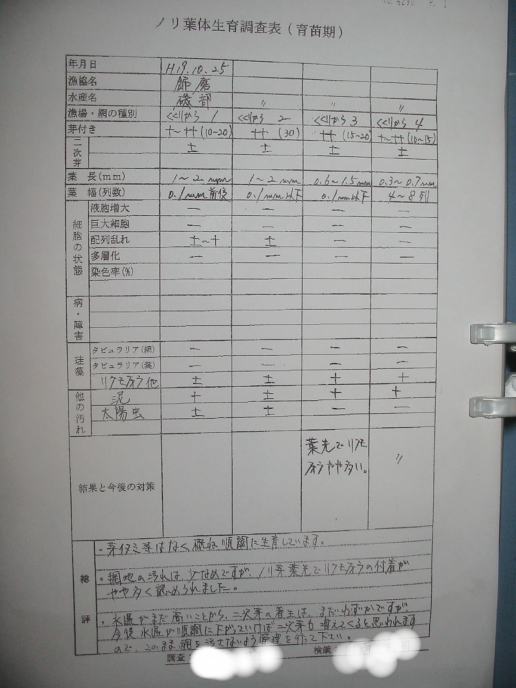 ノリ葉体生育調査表(育苗期)
年月日 H19.10.25
漁協名 飾磨
水産名 磯部 〃 〃 〃
漁場・網の種別 くくりから 1 くくりから 2 くくりから 3 くくりから 4
芽付き +~++(10-20) ++(30) ++(15-20) +~++(10~15)
二次芽 ± ± ± ±
葉 長(mm) 1~2mm 1~2mm 0.6~1.5mm 0.3~0.7mm
葉 幅(列数) 0.1mm前後 0.1mm以下 0.1mm以下 4~8列
細胞の状態
液胞増大 ー ー ー ー
巨大細胞 ー ー ー ー
配列乱れ ±~+ ± ー ー
多層化 ー ー ー ー
染色率(%)
病・障害
珪藻
タビュラリア(網) ー ー ー ー
タビュラリア(葉) ー ー ー ー
リクモフラ他 ± ± + +
他の汚れ
泥 + ± + +
太陽虫 ± ± ー ー
結果と今後の対策
葉先でリクモ 〃
フラやや多い。
総評
・芽イタミ等はなく概ね順調に生育しています。
・網地の汚れは、少なめですが、ノリ芽葉先でリクモフラの付着が
やや多く認められました。
・水温がまだ高いことから、二次芽の着生は、まだわずかですが
今後水温が順調に下がっていけば二次芽も増えてくると思われます
ので、このまま網を汚さないよう管理を行って下さい。
調査 検鏡